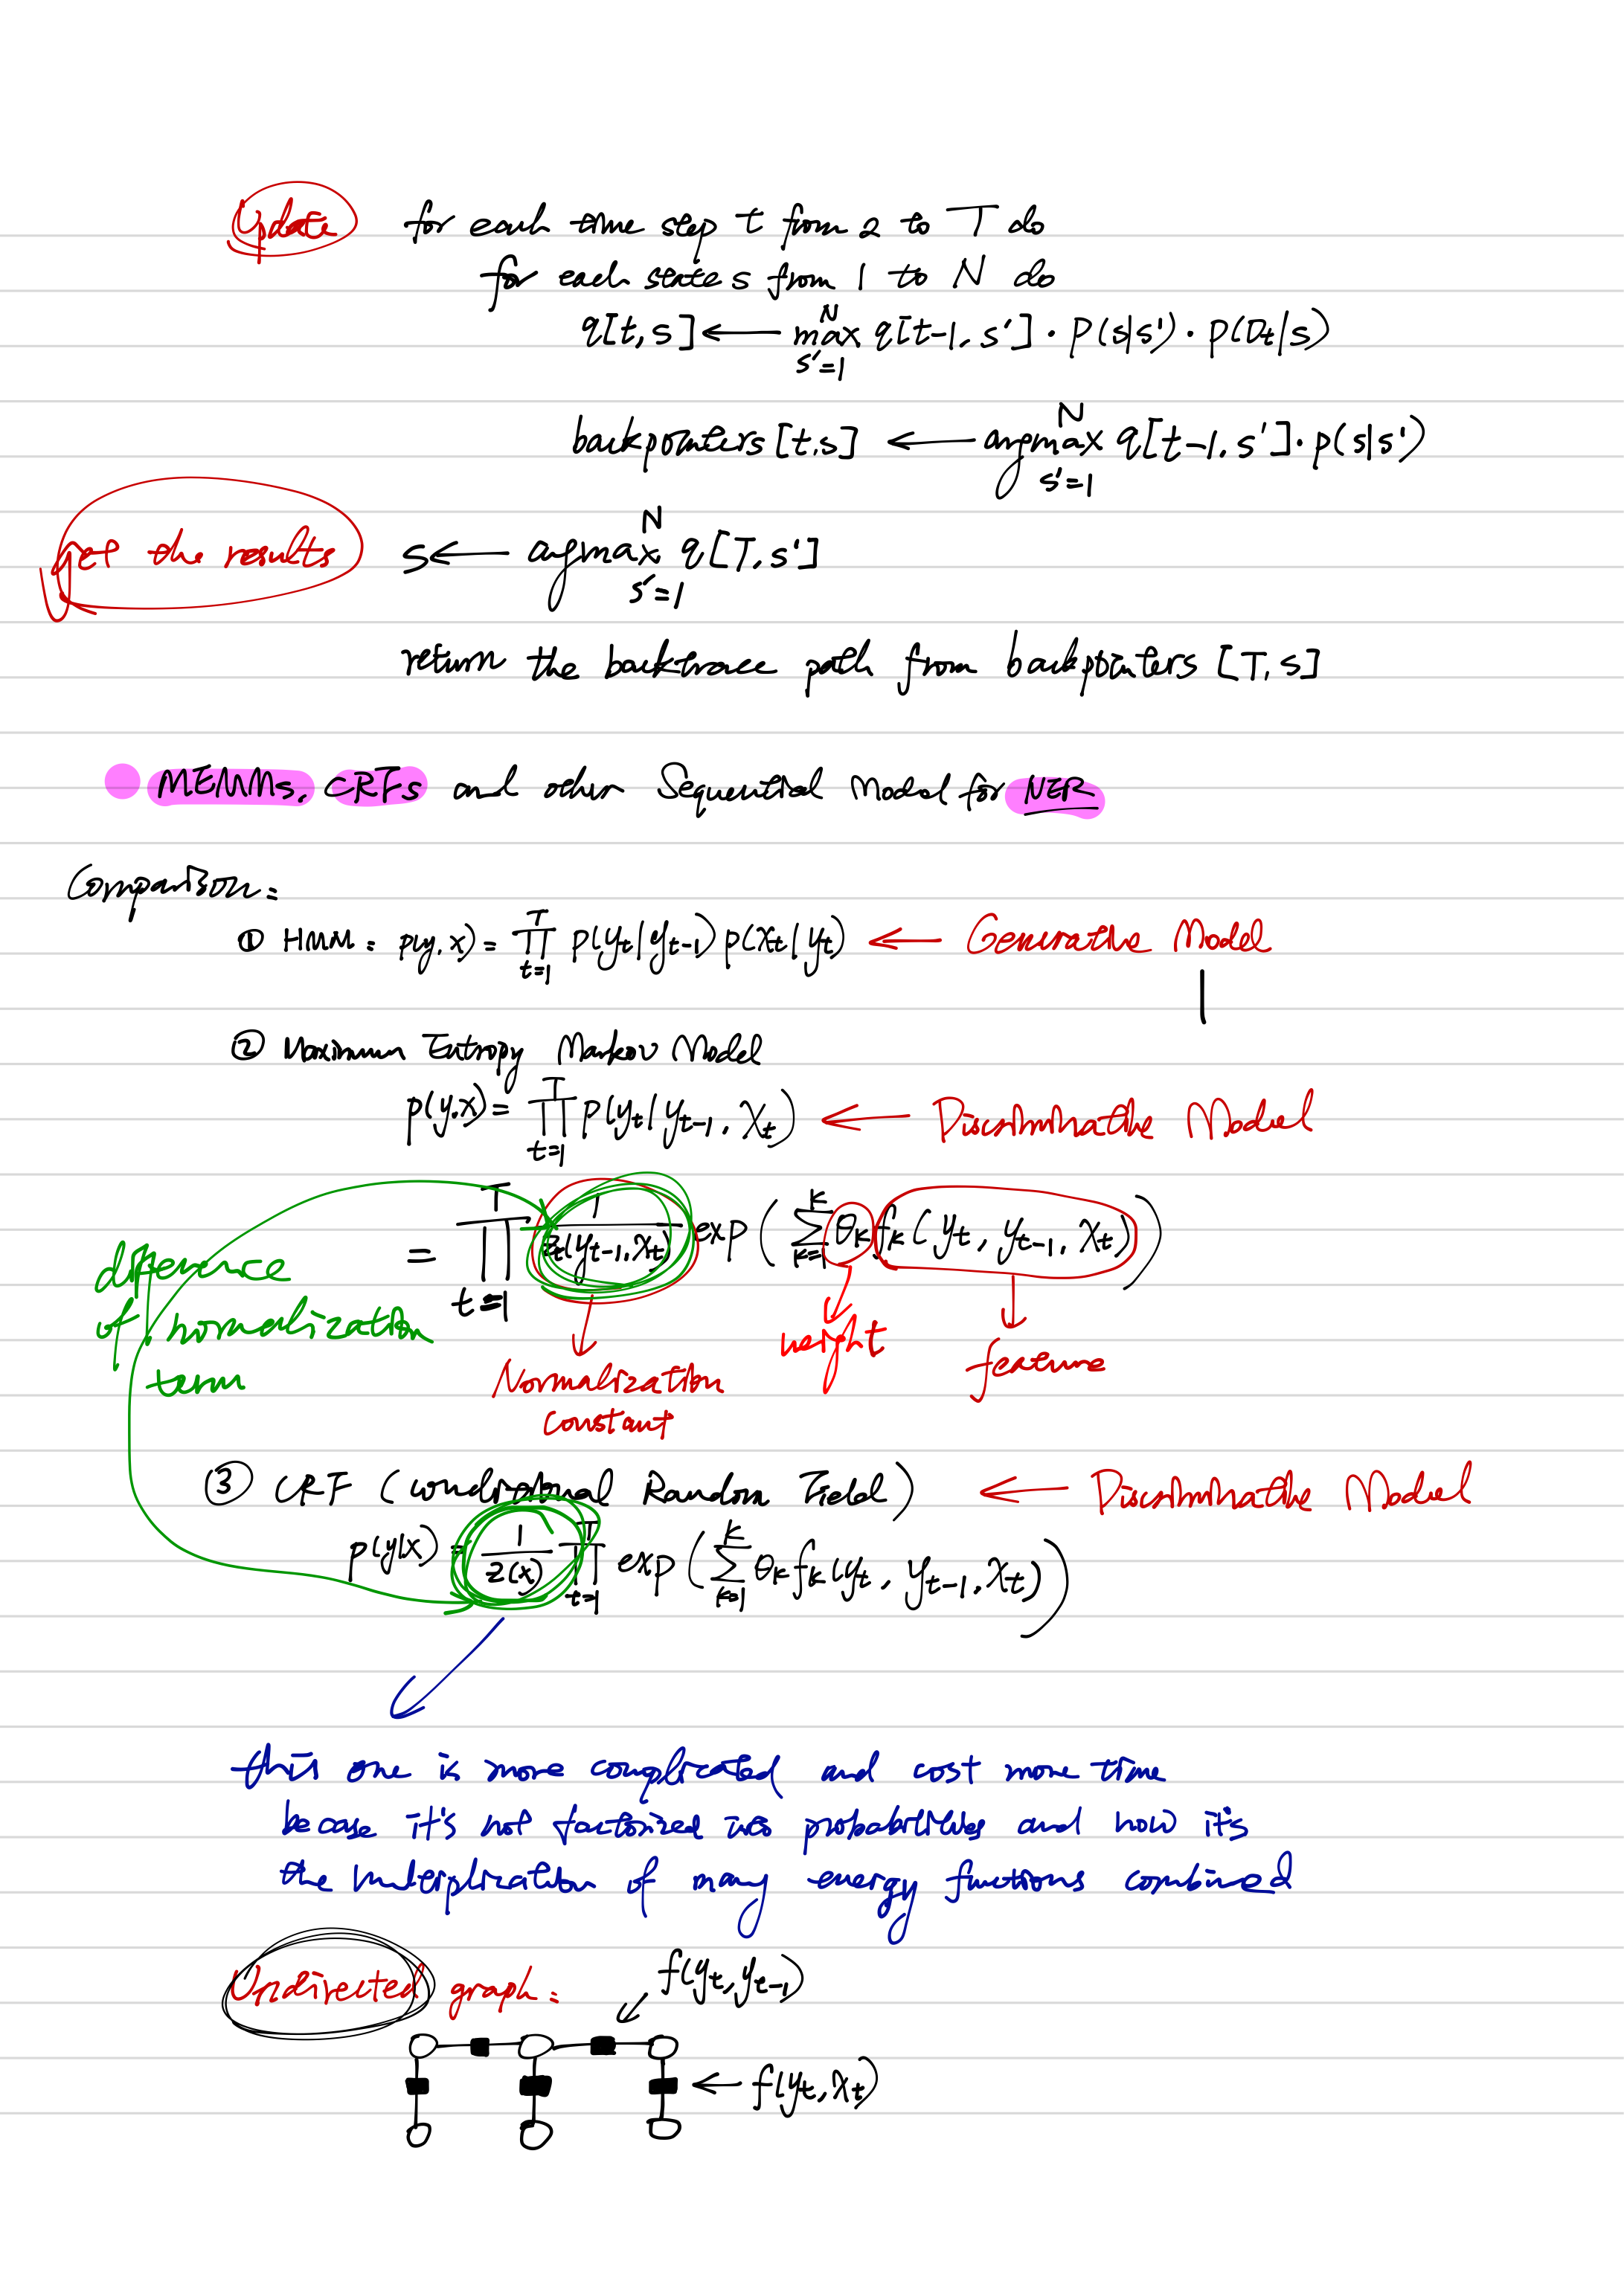 Update for each time step t from 2 to T do
for each state s from 1 to N do
q[t,s] ← max_{s'=1}^{N} q[t-1, s'] · P(s|s') · P(O_t|s)
backpointers [t,s] ← argmax_{s'=1}^{N} q[t-1, s'] · p(s|s')
get the results s ← argmax_{s'=1}^{N} q[T, s']
return the backtrace path from backpointers [T, s]
MEMMs, CRFs and other Sequential Model for NER
Comparison:
① HMM: p(y, x) = ∏_{t=1}^{T} p(y_t|y_{t-1}) p(x_t|y_t) ← Generative Model
② Maximum Entropy Markov Model
p(y,x) = ∏_{t=1}^{T} p(y_t|y_{t-1}, x_t) ← Discriminative Model
= ∏_{t=1}^{T} 1/Z_t(y_{t-1}, x_t) exp(∑_{k=1}^{K} θ_k f_k(y_t, y_{t-1}, x_t))
difference
of normalization
term
weight
feature
Normalization
constant
③ CRF (conditional Random Field) ← Discriminative Model
p(y|x) = 1/Z(x) ∏_{t=1}^{T} exp(∑_{k=1}^{K} θ_k f_k(y_t, y_{t-1}, x_t))
this one is more complicated and cost more time
becase it's not factorized into probabilities and now it's
the multiplication of many energy functions combined
Undirected graph: f(y_t, y_{t-1})
← f(y_t, x_t)